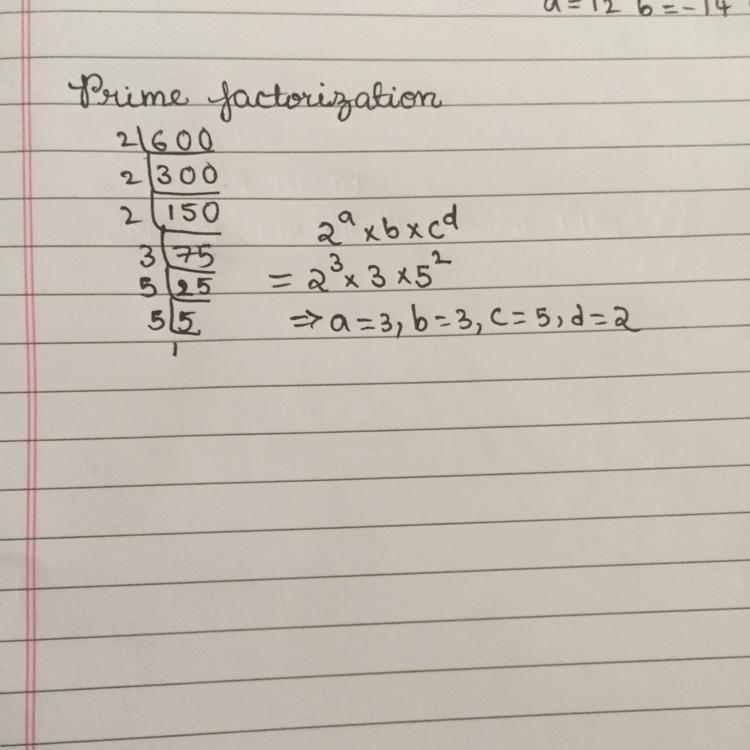 a=12 b=-14
Prime factorization
2|600
2|300
2|150
3|75
5|25
5|5
1
2^a×b×c^d
=2^3×3×5^2
⇒a=3, b=3, c=5, d=2